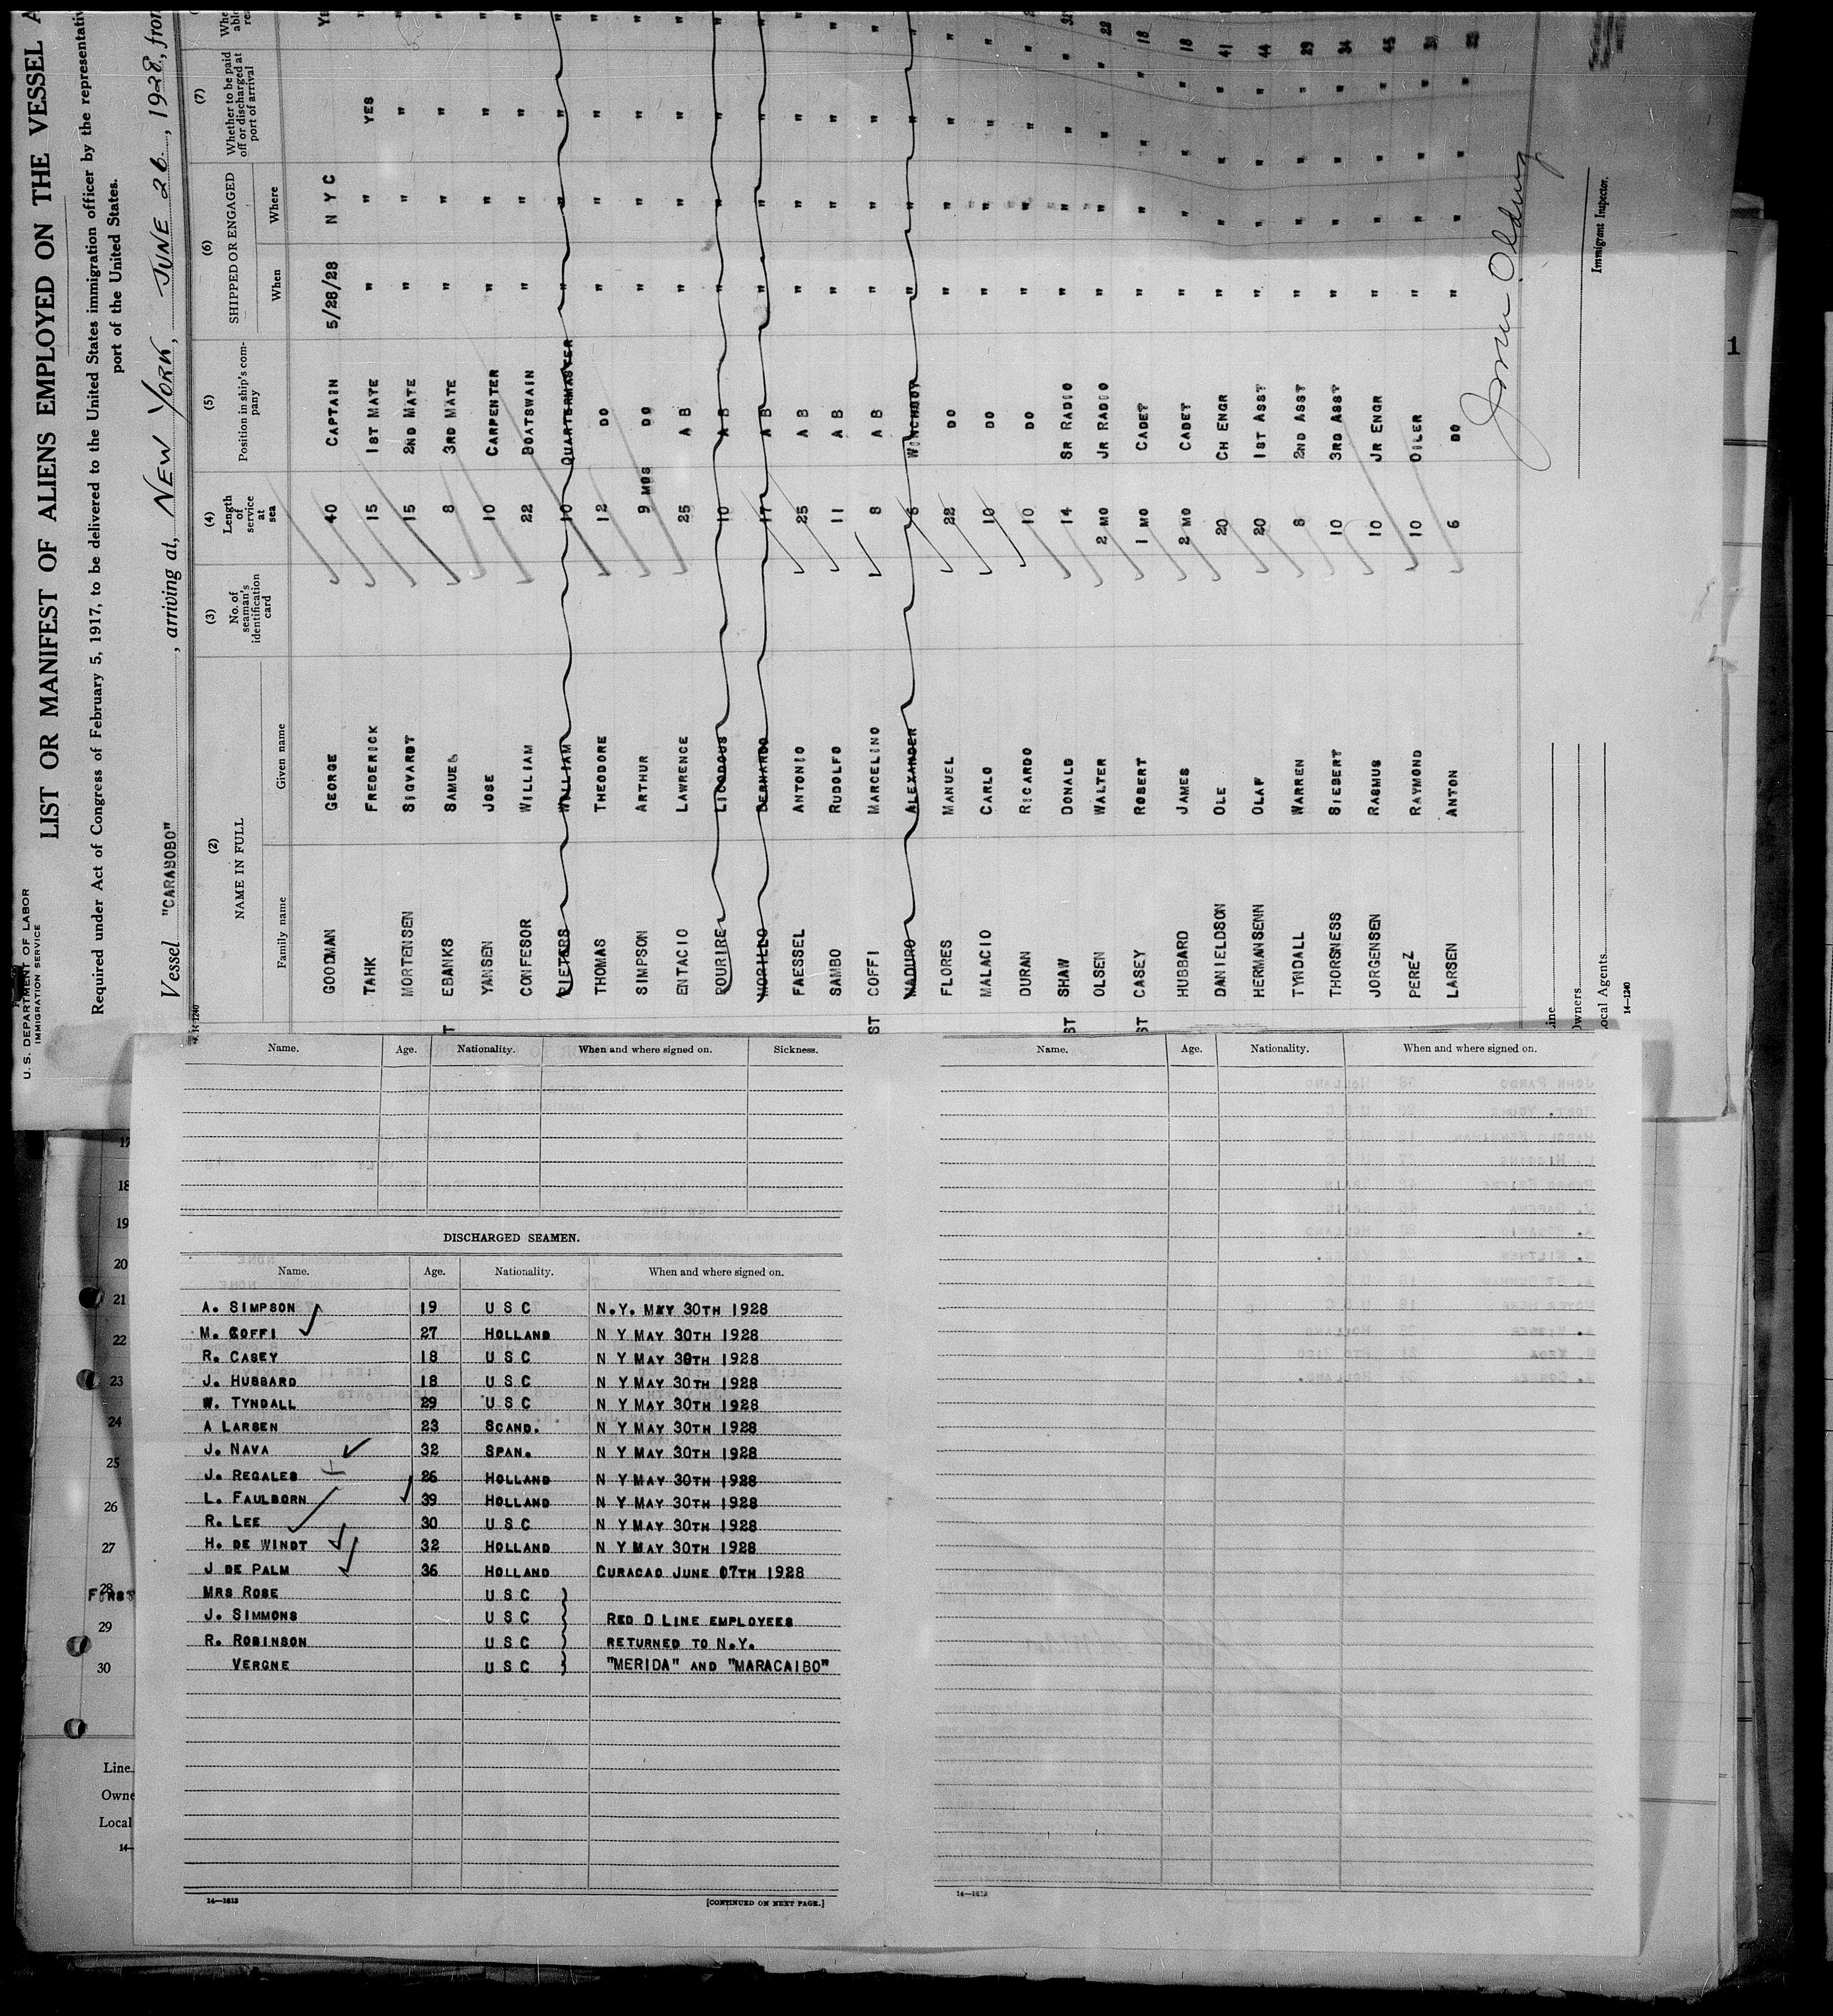 U. S. DEPARTMENT OF LABOR
IMMIGRATION SERVICE
LIST OR MANIFEST OF ALIENS EMPLOYED ON THE VESSEL A
Required under Act of Congress of February 5, 1917, to be delivered to the United States immigration officer by the representativ
port of the United States.
Vessel "CARABOBO", arriving at, NEW YORK, JUNE 26, 1928, from
14-1240
(2) (3) (4) (5) (6) (7)
NAME IN FULL No. of seaman's identification card Length of service at sea Position in ship's com-pany SHIPPED OR ENGAGED Whether to be paid off or discharged at port of arrival
Family name Given name When Where
GOODMAN GEORGE 40 CAPTAIN 5/28/28 N Y C
TAHK FREDERICK 15 1ST MATE " " YES
MORTENSEN SIGVARDT 15 2ND MATE " " "
EBANKS SAMUEL 8 3RD MATE " " "
YANSEN JOSE 10 CARPENTER " " "
CONFESOR WILLIAM 22 BOATSWAIN " " "
PIETERS WILLIAM 10 QUARTERMASTER " " "
THOMAS THEODORE 12 DO " " "
SIMPSON ARTHUR 9 MOS DO " " "
ENTACIO LAWRENCE 25 A B " " "
ROURIRE LICODOUS 10 A B " " "
MORILLO BERNARDO 17 A B " " "
FAESSEL ANTONIO 25 A B " " "
SAMBO RUDOLFO 11 A B " " "
ST COFFI MARCELINO 8 A B " " "
MADURO ALEXANDER 6 WINCHBOY " " "
FLORES MANUEL 22 DO " " " "
MALACIO CARLO 10 DO " " " "
DURAN RICARDO 10 DO " " "
ST SHAW DONALD 14 SR RADIO " " "
OLSEN WALTER 2 MO JR RADIO " " " " 22
ST CASEY ROBERT 1 MO CADET " " " " 18
HUBBARD JAMES 2 MO CADET " " " " 18
DANIELDSON OLE 20 CH ENGR " " " " 41
HERMANSENN OLAF 20 1ST ASST " " " " 44
TYNDALL WARREN 8 2ND ASST " " " " 29
THORSNESS SIEBERT 10 3RD ASST " " " " 34
JORGENSEN RASMUS 10 JR ENGR " " " " 45
PEREZ RAYMOND 10 OILER " " " "
LARSEN ANTON 6 DO " " " "
Immigrant Inspector.
ine
wners
ocal Agents
14-1240
1
Name. Age. Nationality. When and where signed on. Sickness.
DISCHARGED SEAMEN.
Name. Age. Nationality. When and where signed on.
A. SIMPSON 19 U S C N.Y. MAY 30TH 1928
M. COFFI 27 HOLLAND N Y MAY 30TH 1928
R. CASEY 18 U S C N Y MAY 30TH 1928
J. HUBBARD 18 U S C N Y MAY 30TH 1928
W. TYNDALL 29 U S C N Y MAY 30TH 1928
A LARSEN 23 SCAND. N Y MAY 30TH 1928
J. NAVA 32 SPAN. N Y MAY 30TH 1928
J. REGALES 26 HOLLAND N Y MAY 30TH 1928
L. FAULBORN 39 HOLLAND N Y MAY 30TH 1928
R. LEE 30 U S C N Y MAY 30TH 1928
H. DE WINDT 32 HOLLAND N Y MAY 30TH 1928
J DE PALM 36 HOLLAND CURACAO JUNE 07TH 1928
MRS ROSE U S C }
J. SIMMONS U S C } RED D LINE EMPLOYEES
R. ROBINSON U S C } RETURNED TO N.Y.
VERGNE U S C } "MERIDA" AND "MARACAIBO"
14-1613 [CONTINUED ON NEXT PAGE.]
Name. Age. Nationality. When and where signed on.
14-1613
17
18
19
20
21
22
23
24
25
26
27
28
29
30
Line
Owne
Local
14-